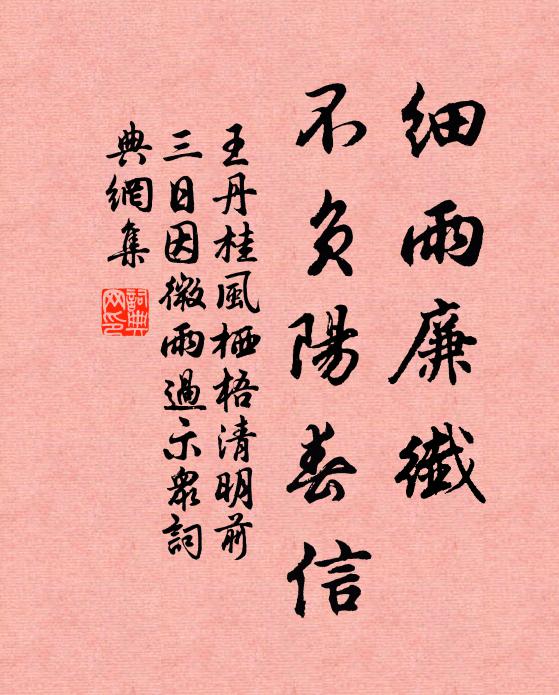 細雨廉纖
不負陽春信
王丹桂風栖梧清明前
三日因微雨過示眾詞
典網集
詞典網印